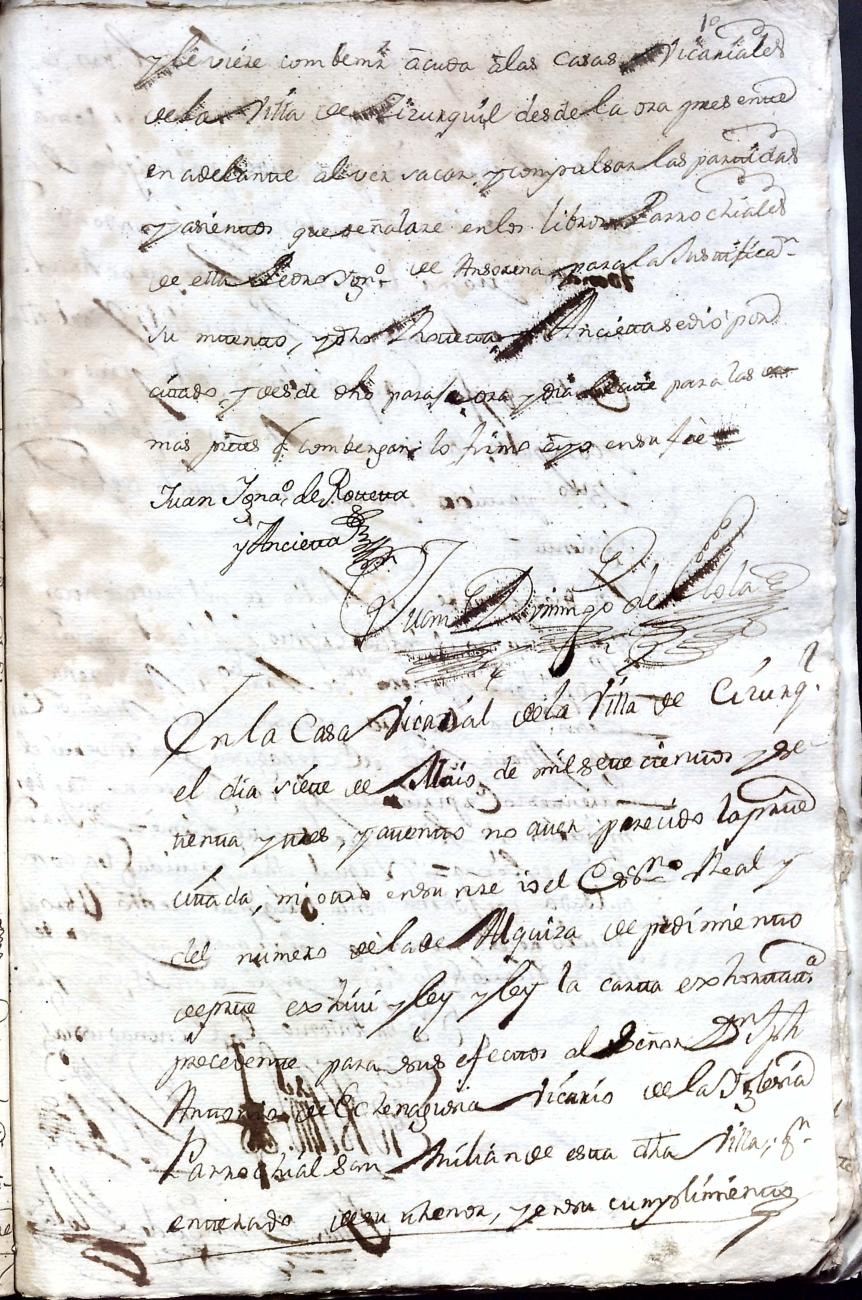 y se viere combemr acuda a las Casas Vicariales
de la Villa de Zirurquil desde la ora presente
en adelante al ver sacar y compulsar las partidas
y asientos que señalare en los libros Parrochiales
de ella Pedro Ignº de Ansorena para la Justifican
su intento, y dho Rovetta y Ancieta se dio por
citado, y desde dho para la ora y dia para las de
mas ptes q combengan lo firmo e yo en su fee
Juan Ignaº de Rovetta
y Ancieta
Juan Domingo de
En la Casa Vicarial de la Villa de Cirurql
el dia siete de Maio de mil sete cientos y se
tenta y tres, y atento no aver parecido la parte
citada, ni otro en su nre io el Essno Real y
del numero de la de Alquiza de pedimiento
de parte exhivi y ley y ley la carta exhortata
precedente para sus efectos al Señor Dn Jph
Antonio de Echenagusia Vicario de la Iglesia
Parrochial San Milian de esta dha Villa, qn
enterado de su thenor, y en su cumplimiento